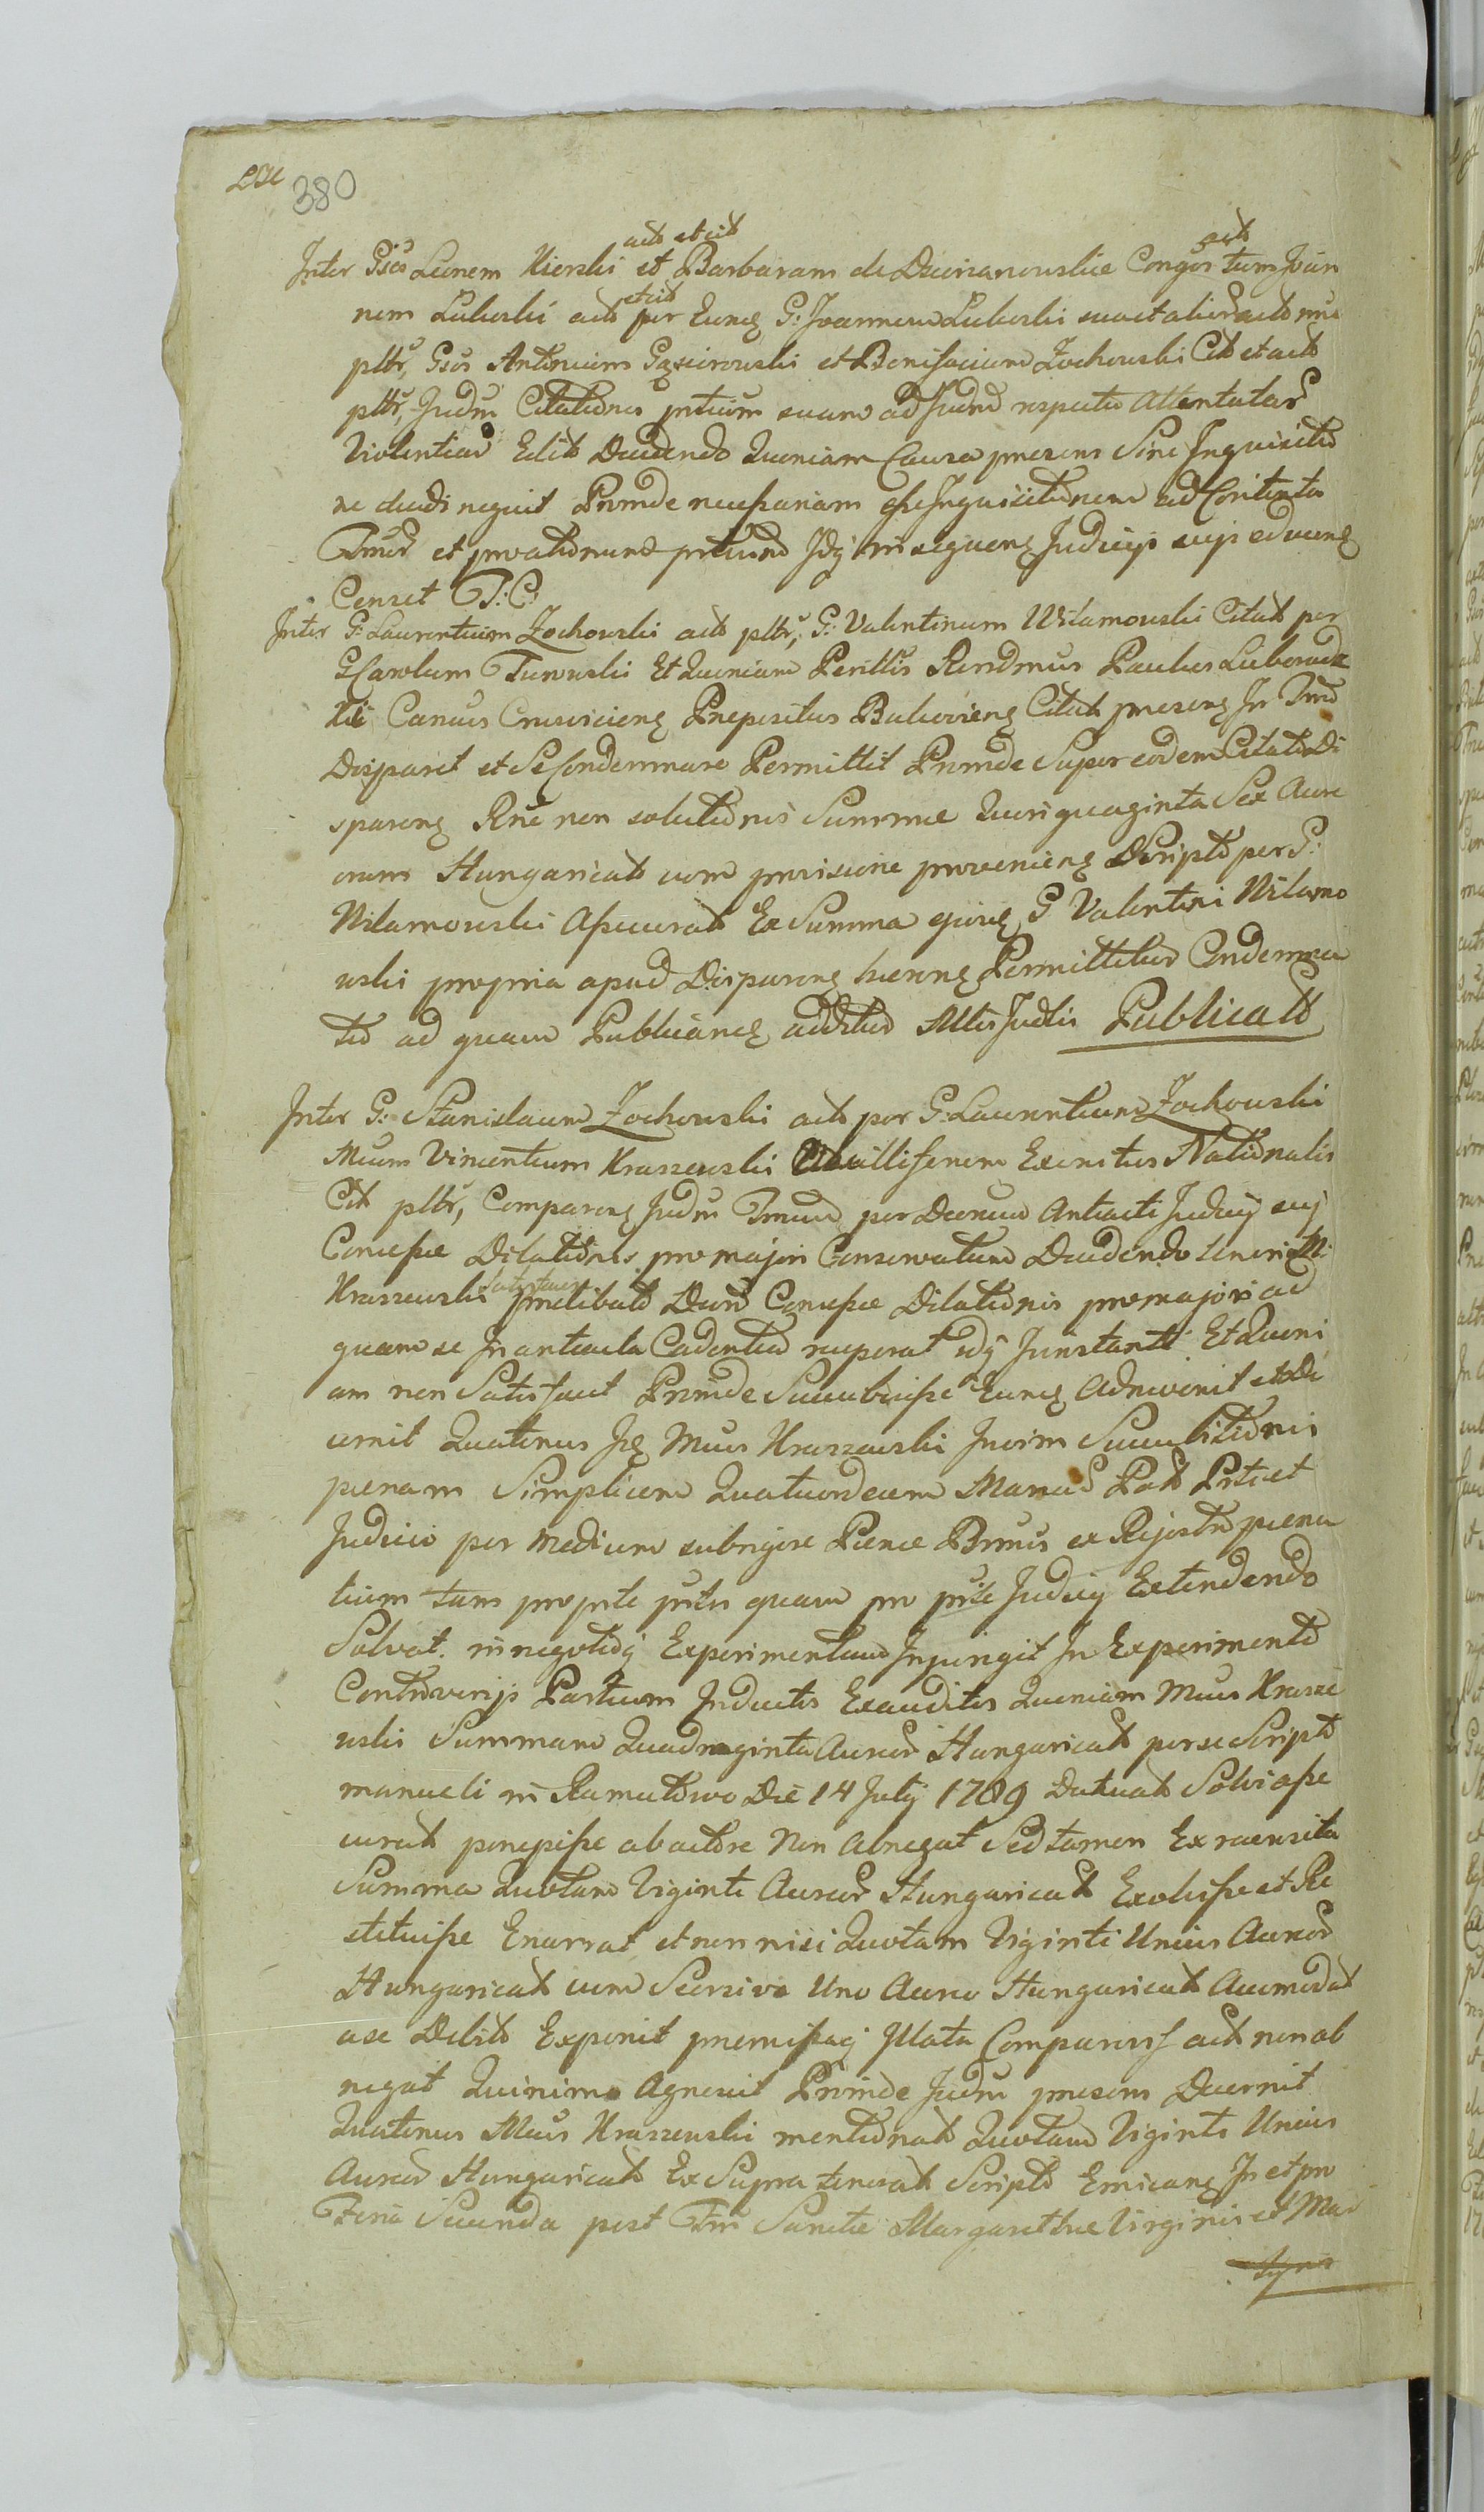 380
act et cit act
Inter Gsos Leonem Kierski et Barbaram de Dzierzanowskie Conges tum Joan
nem Luboski act et cit per Eunq G: Joannem Luboski suo et alior act nne
pltr, Gsos Antonium Gąsiorowski et Bonifacium Zochowski Cit et act
pltr, Judm Citationes ptium suam ad Judm respectu Attentatar
Violentiar Edit Decidendo Quoniam Causa presens Sine Inquisitio
ne decidi nequit Proinde necessariam esse Inquisitionem ad Contenta
Tmor et probationum ptium Idq in sequenq Judicijs suji educenq
Censet T: C:
Inter G: Laurentium Zochowski act pltr, G: Valentinum Wilamowski Citat per
G Carolum Turowski Et Quoniam Perillis Rendmus Paulus Luboradz
ki Cancus Crusvicienq Prepositus Bukovienq Citat presenq In Tmo
Disparet et Se Condemnare Permittit Proinde Super eodem Citato Di
sparenq Rne non solutionis Summae Quinquaginta Sex Aure
orum Hungaricat cum provisione provenienq Scripto per G:
Wilamowski Assecurat Ex Summa ejusq G Valentini Wilamo
wski propria apud Disparenq herenq Permittitur Condemna
tio ad quam Publicanq additur Mltis Judlis Publicatt
Inter G: Stanislaum Zochowski act per G: Laurentium Zochowski
Mcum Vincentium Kraszewski Vexilliferum Exercitus Nationalis
Cit pltr, Comparenq Judm Tmum per Decreum Antiacti Judicij suj
Concessae Dilationis pro majori Conservatum Decidendo tenori M:
Kraszewski Satisfacit prelibato Decro Concessae Dilationis pro majori ad
quam se In antiacta Cadentia receperat idq Iunstanti Et Quoni
am non Satisfacit Proinde Succubuisse Eunq Adnivenit et De
cernit Quatenus Isq Mcus Kraszewski Inoim Succubitionis
penam Simplicem Quatuordecim Marcar Pol Pti et
Judicio per medium subrigere Pienae Bmus ex Rejestro piena
lium tam pro pte ptis quam pro pte Judicij Extendendo
Solvat in negotioq Experimentum Injungit In Experimento
Controversijs Partium Inductis Exauditis Quoniam Mcus Krasze
wski Summam Quadraginta Aureor Hungaricat per se Scripto
manuali in Ramutowo Die 14 July 1789 Datuat Solvi asse
curat percepisse ab actore Non Abnegat Sed tamen Ex recensita
Summa Quotam Viginti Aureor Hungaricat Exolvisse et Re
stituisse Enarrat et non nisi Quotam Viginti Unius Aureor
Hungaricat cum Seorsivo Uno Aureo Hungaricat Accomodat
a se Debit Exponit premissaq Illata Comparens act non ab
negat Quinimo Agnescit Proinde Judm presens Decernit
Quatenus Mcus Kraszewski mentionat Quotam Viginti Unius
Aureor Hungaricat Ex Supra tenorat Scripto Emicanq In et pro
Feria Secunda post Fm Sanctae Margarethae Virginis et Mar
tyris